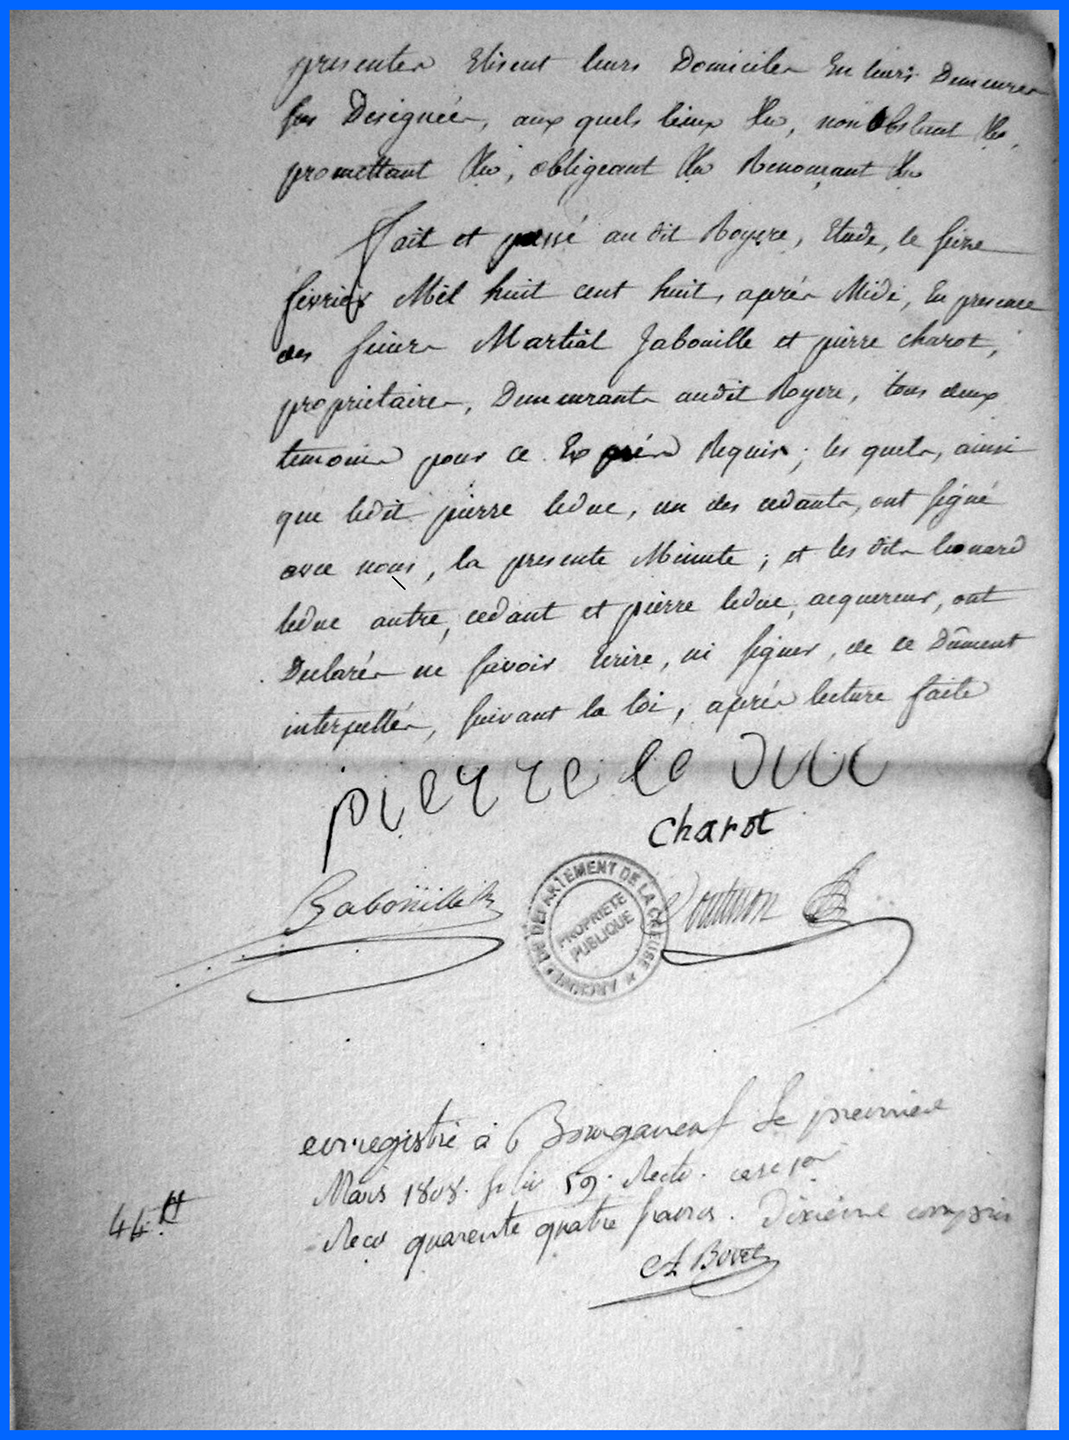 presentes Elisent leurs Domiciles En leurs Demeures
sus Designées, aux quels lieux &a, nonobstant &a,
promettant &a, obligeant &a Renonçant &a
Fait et passé au dit Royere, Etude, le seize
février Mil huit cent huit, après Midi, En presence
des sieurs Martial Jabouille et pierre charot,
proprietaires, Demeurants audit Royere, tous deux
temoins pour ce Exprés Requis; les quels, ainsi
que ledit pierre leduc, un des cedants, ont signé
avec nous, la presente Minute; et les dits leonard
leduc autre, cedant et pierre leduc, acquereur, ont
Declarés ne savoir Ecrire, ni signer, de ce Dûment
interpellés, suivant la loi, après lecture faite
pierre le duc
charot
Jabouille
ARCHIVES DU DÉPARTEMENT DE LA CREUSE
PROPRIÉTÉ
PUBLIQUE
enregistré à Bourganeuf le premier
Mars 1808. folio 59. Recto. case 1re
44.tt
Reçu quarente quatre francs. Dixième compris
Bovet